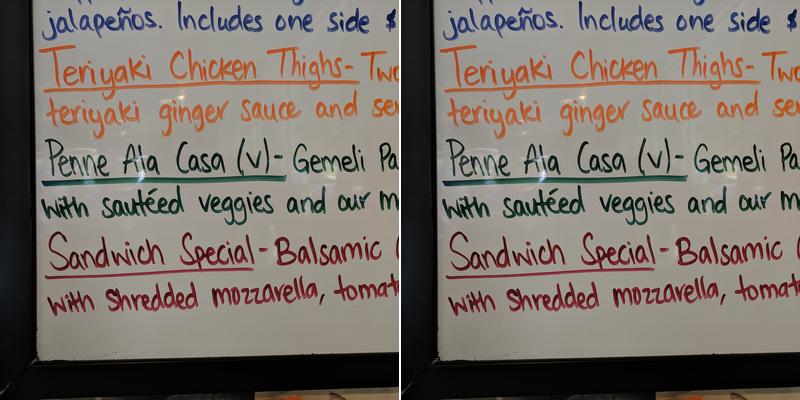 jalapeños. Includes one side $
Teriyaki Chicken Thighs- Two
teriyaki ginger sauce and se
Penne Ala Casa (v)- Gemeli Pa
with sautéed veggies and our m
Sandwich Special- Balsamic
with shredded mozzarella, tomat
jalapeños. Includes one side $
Teriyaki Chicken Thighs- Two
teriyaki ginger sauce and se
Penne Ala Casa (v)- Gemeli Pa
with sautéed veggies and our m
Sandwich Special- Balsamic
with shredded mozzarella, tomat